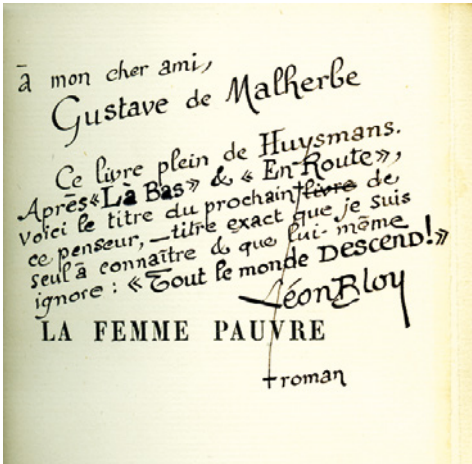 à mon cher ami,
Gustave de Malherbe
Ce livre plein de Huysmans.
Après «Là Bas» & « En Route»,
voici le titre du prochain † livre de
ce penseur, — titre exact que je suis
seul à connaître & que lui-même
ignore : « Tout le monde DESCEND!»
Léon Bloy
LA FEMME PAUVRE
† roman